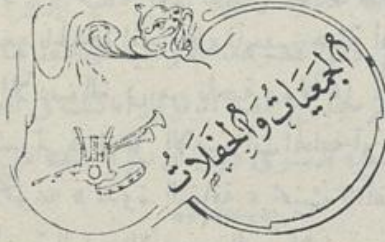 الجَمْعِيَّات وَالحَفَلَاتُ